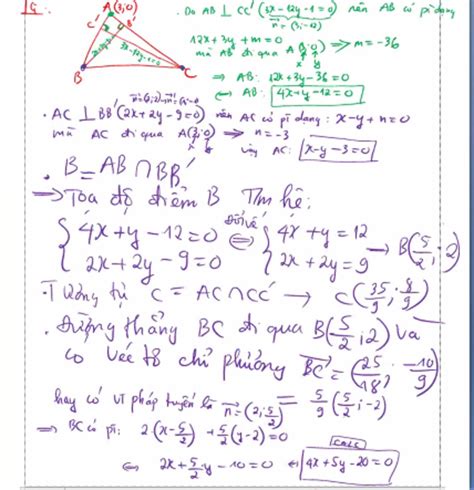 A(3;0)
C' B'
B C
. Do AB ⊥ CC' (3x-12y-1=0) nên AB có pt dạng
n=(3;-12)
12x+3y+m=0
mà AB đi qua A(3;0) ⇒ m=-36
⇒ AB: 12x+3y-36=0
⇔ AB: 4x+y-12=0
. AC ⊥ BB' (2x+2y-9=0) nên AC có pt dạng: x-y+n=0
mà AC đi qua A(3;0) ⇒ n=-3
vậy AC: x-y-3=0
. B = AB ∩ BB'
⇒ Tọa độ điểm B TM hệ:
{ 4x+y-12=0 ⇔ { 4x+y=12 → B(5/2; 2)
{ 2x+2y-9=0 { 2x+2y=9
Tương tự C = AC ∩ CC' → C(35/9; 8/9)
. Đường thẳng BC đi qua B(5/2; 2) và
có véc tơ chỉ phương BC = (25/18; -10/9)
= 5/9 (5/2; -2)
hay có VT pháp tuyến là n=(2; 5/2)
⇒ BC có pt: 2(x-5/2)+5/2(y-2)=0
CALC
⇔ 2x+5/2 y-10=0 ⇔ 4x+5y-20=0